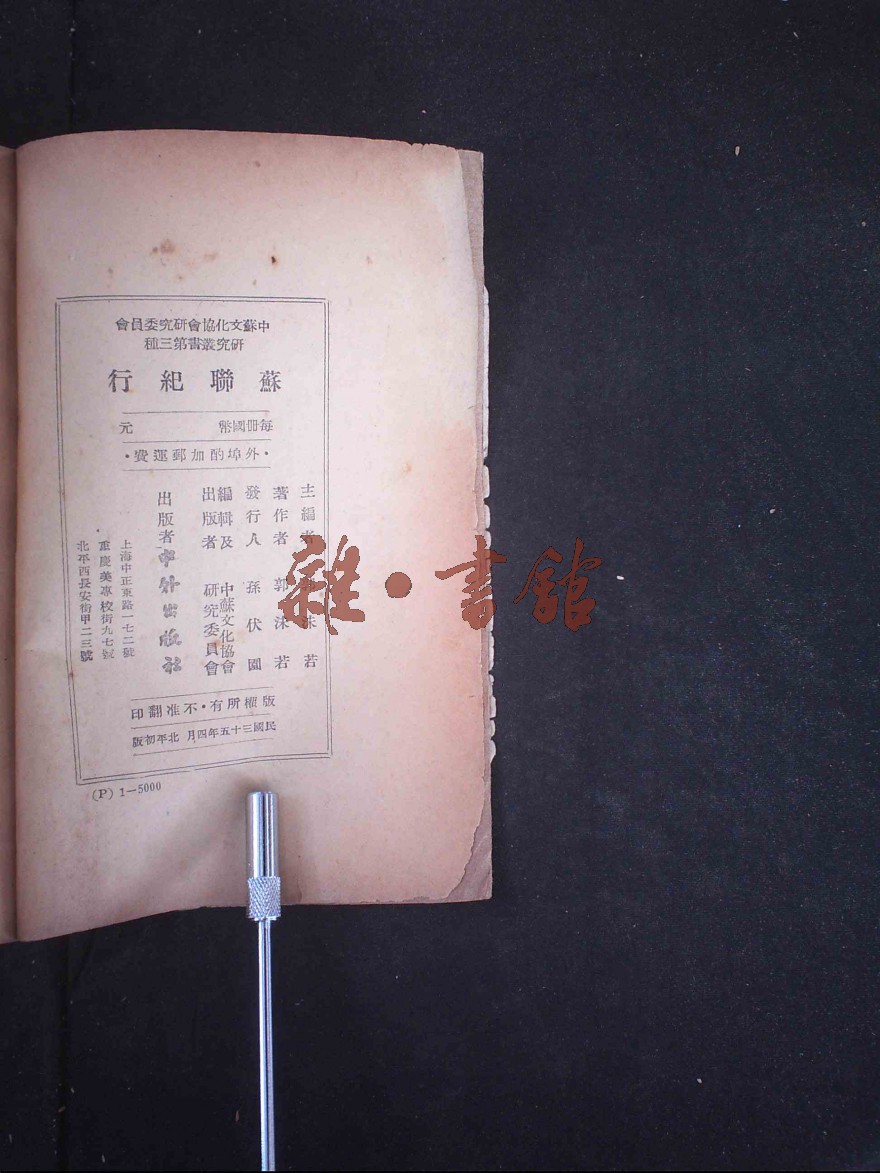 中蘇文化協會研究委員會
研究叢書第三種
蘇聯紀行
每冊國幣 元
·外埠酌加郵運費·
主編者 郭沫若
著作者 郭沫若
發行人 孫伏園
編輯及出版者 中蘇文化協會研究委員會
出版者 中外出版社
上海中正東路一七二號
重慶美專校街九七號
北平西長安街甲二三號
版權所有·不准翻印
民國三十五年四月 北平初版
(P) 1—5000
雜·書館